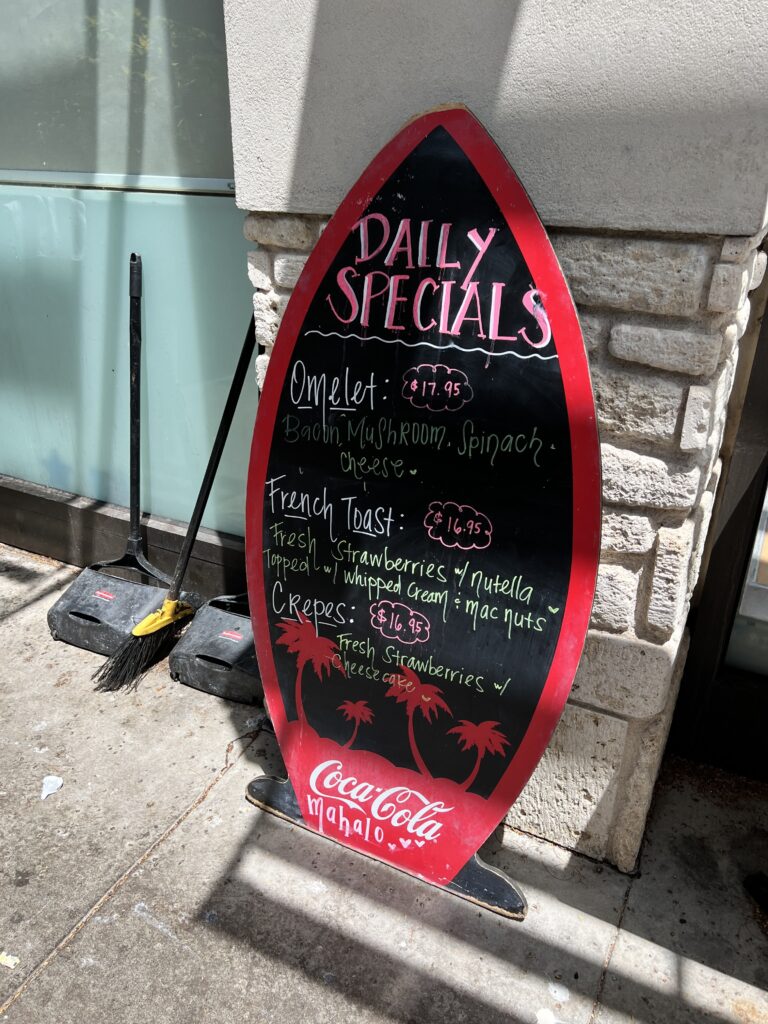 DAILY
SPECIALS
Omelet: $17.95
Bacon, MuShROOM, Spinach.
Cheese.
French Toast: $16.95
Fresh Strawberries w/ nutella
Topped w/ whipped Cream & mac nuts
Crepes: $16.95
Fresh Strawberries w/
Cheesecake
Coca-Cola
mahalo